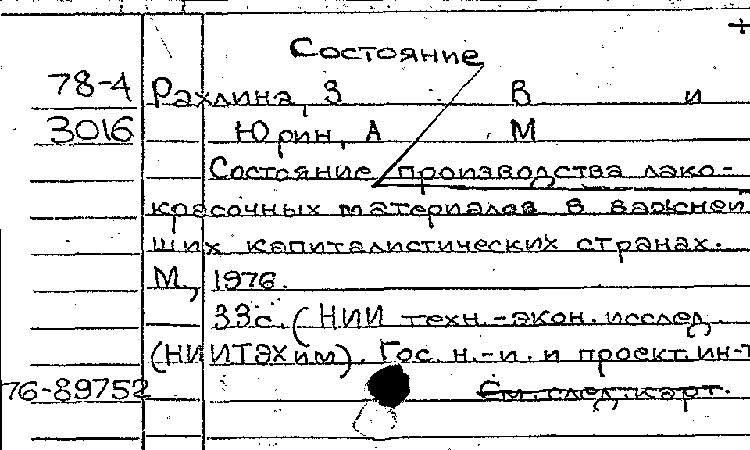 +
Состояние
78-4 Рахлина, З В и
3016 Юрин, А М
Состояние производства лако-
красочных материалов в важней
ших капиталистических странах.
М., 1976.
33с. (НИИ техн.-экон. исслед.
(НИИТЭХим). Гос. н.-и. и проект. ин-т
76-89752 См. след. карт.